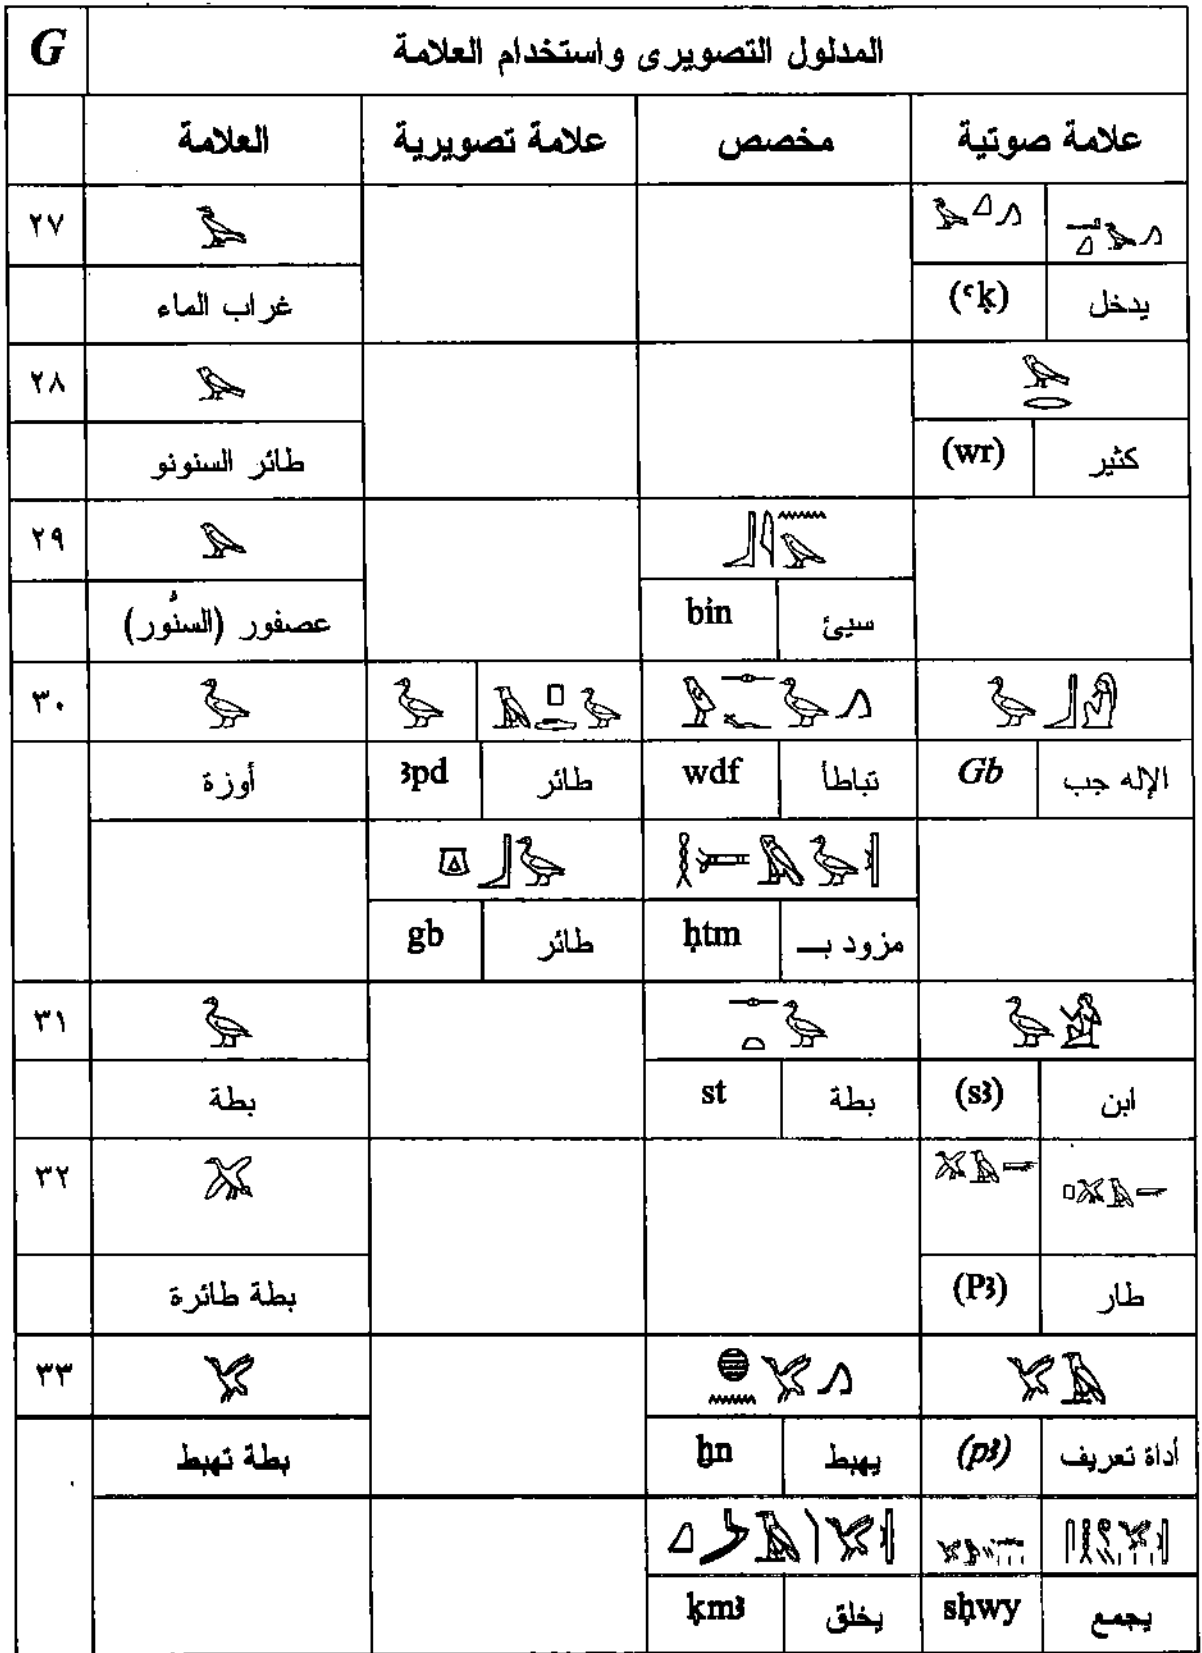 G المدلول التصويرى واستخدام العلامة
العلامة علامة تصويرية مخصص علامة صوتية
٢٧
غراب الماء (ꜥḳ) يدخل
٢٨
طائر السنونو (wr) كثير
٢٩
عصفور (السنُّور) bin سيئ
٣٠
أوزة ꜣpd طائر wdf تباطأ Gb الإله جب
gb طائر ḥtm مزود بــ
٣١
بطة st بطة (sꜣ) ابن
٣٢
بطة طائرة (Pꜣ) طار
٣٣
بطة تهبط ḫn يهبط (pꜣ) أداة تعريف
ḳmꜣ يخلق sḥwy يجمع